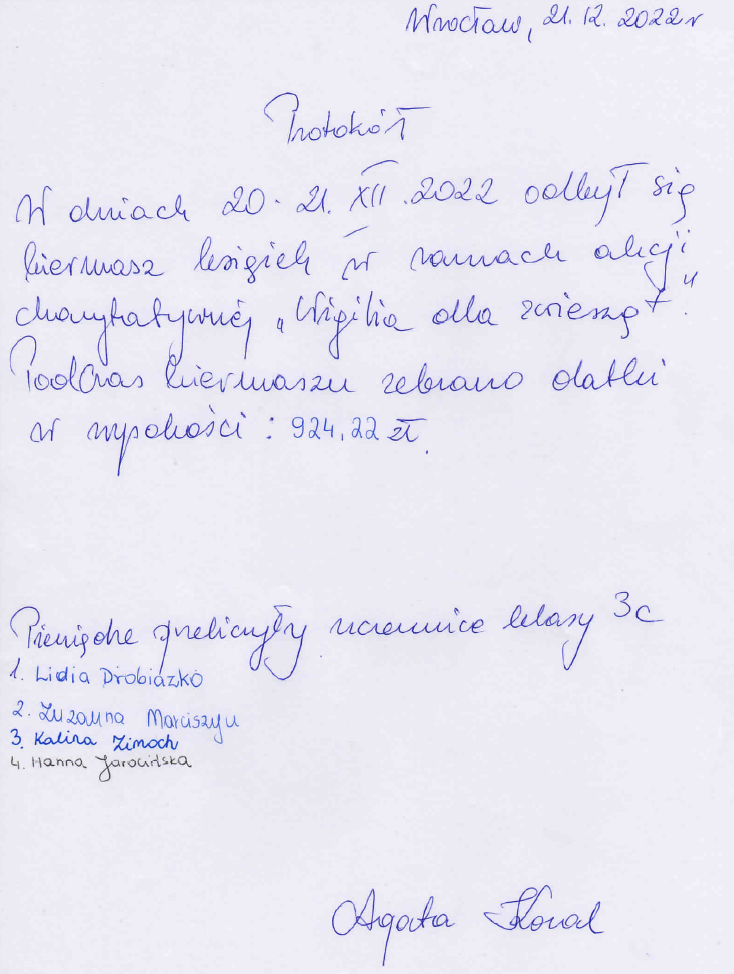 Wrocław, 21. 12. 2022 r
Protokół
W dniach 20 - 21. XII . 2022 odbył się
kiermasz książek w ramach akcji
charytatywnej „Wigilia dla zwierząt".
Podczas kiermaszu zebrano datki
w wysokości : 924,22 zł.
Pieniądze przeliczyły uczennice klasy 3c
1. Lidia Drobiazko
2. Zuzanna Marciszyn
3. Kalina Zimoch
4. Hanna Jarocińska
Agata Kowal